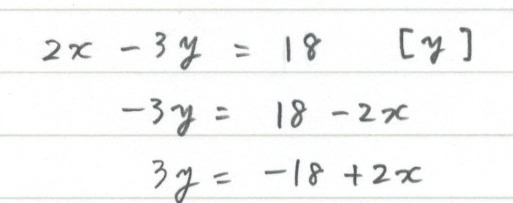 2x - 3y = 18 [y]
-3y = 18 - 2x
3y = -18 + 2x